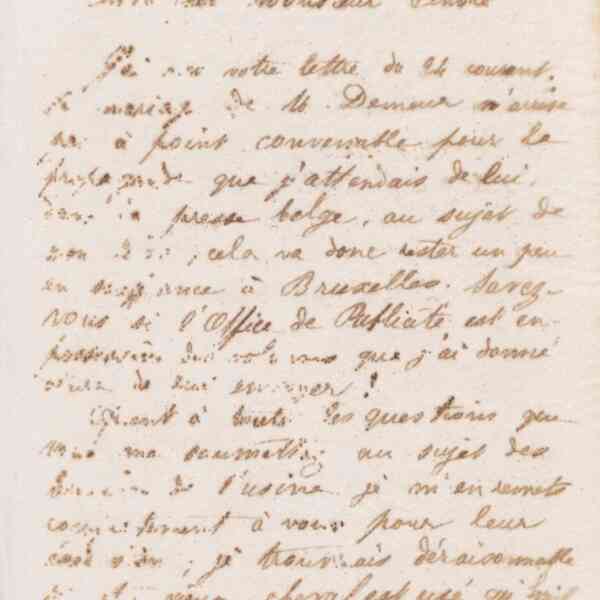 mon cher Monsieur
J'ai reçu votre lettre du 24 courant.
Le mariage de M. Demeur n'arrive
pas à point convenable pour la
propagande que j'attendais de lui,
dans la presse belge, au sujet de
mon ; cela va donc rester un peu
en à Bruxelles. Savez-
vous si l'Office de Publicité est en
possession des volumes que j'ai donné
de lui envoyer ?
Quant à toutes les questions que
vous me soumettez au sujet des
de l'usine je m'en remets
complètement à vous pour leur
; je trouverais déraisonnable
cheval est usé